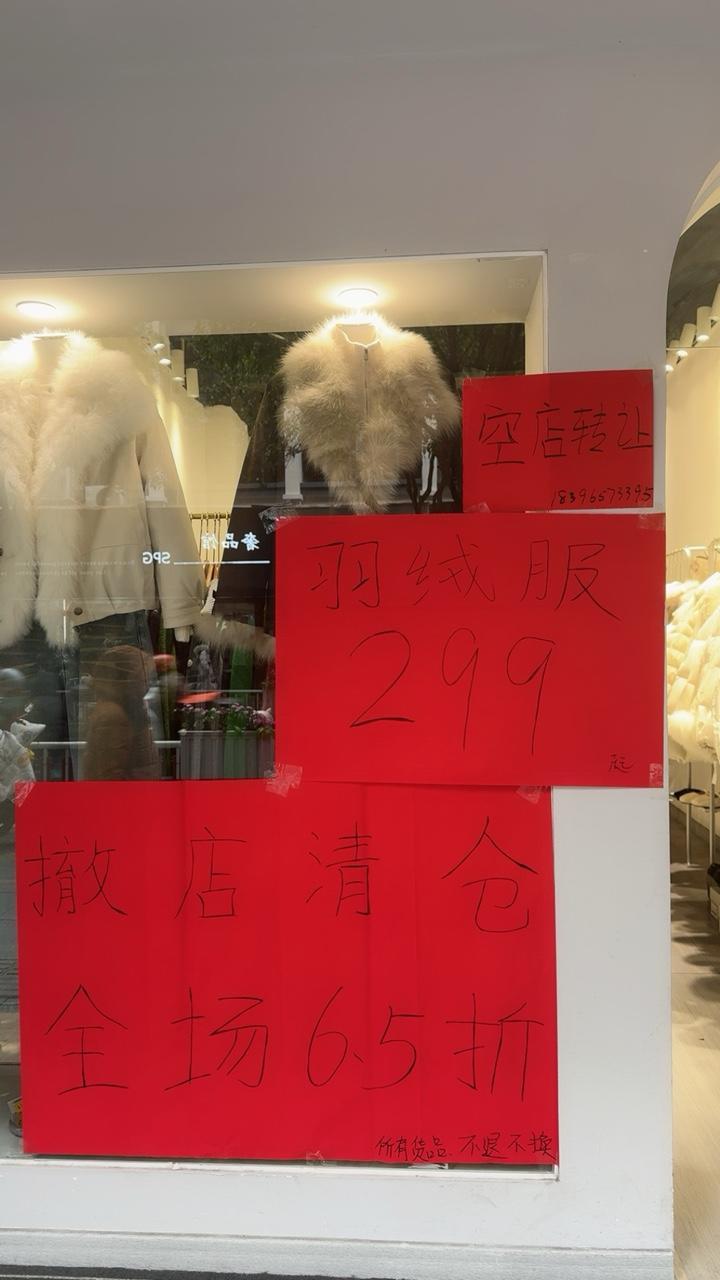 空店转让
18396573395
羽绒服
299
起
奢品馆
SPG
撤店清仓
全场6.5折
所有货品 不退不换